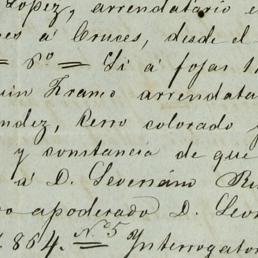 Lopez, arrendatario e
es á Cruces, desde el
= 8º = Si á fojas 1
in Tramo arrendata
ndez, Cerro colorado y
y constancia de que
á D. Severiano Ru
o apoderado D. Leon
1.864. = Nº 5 Interrogator